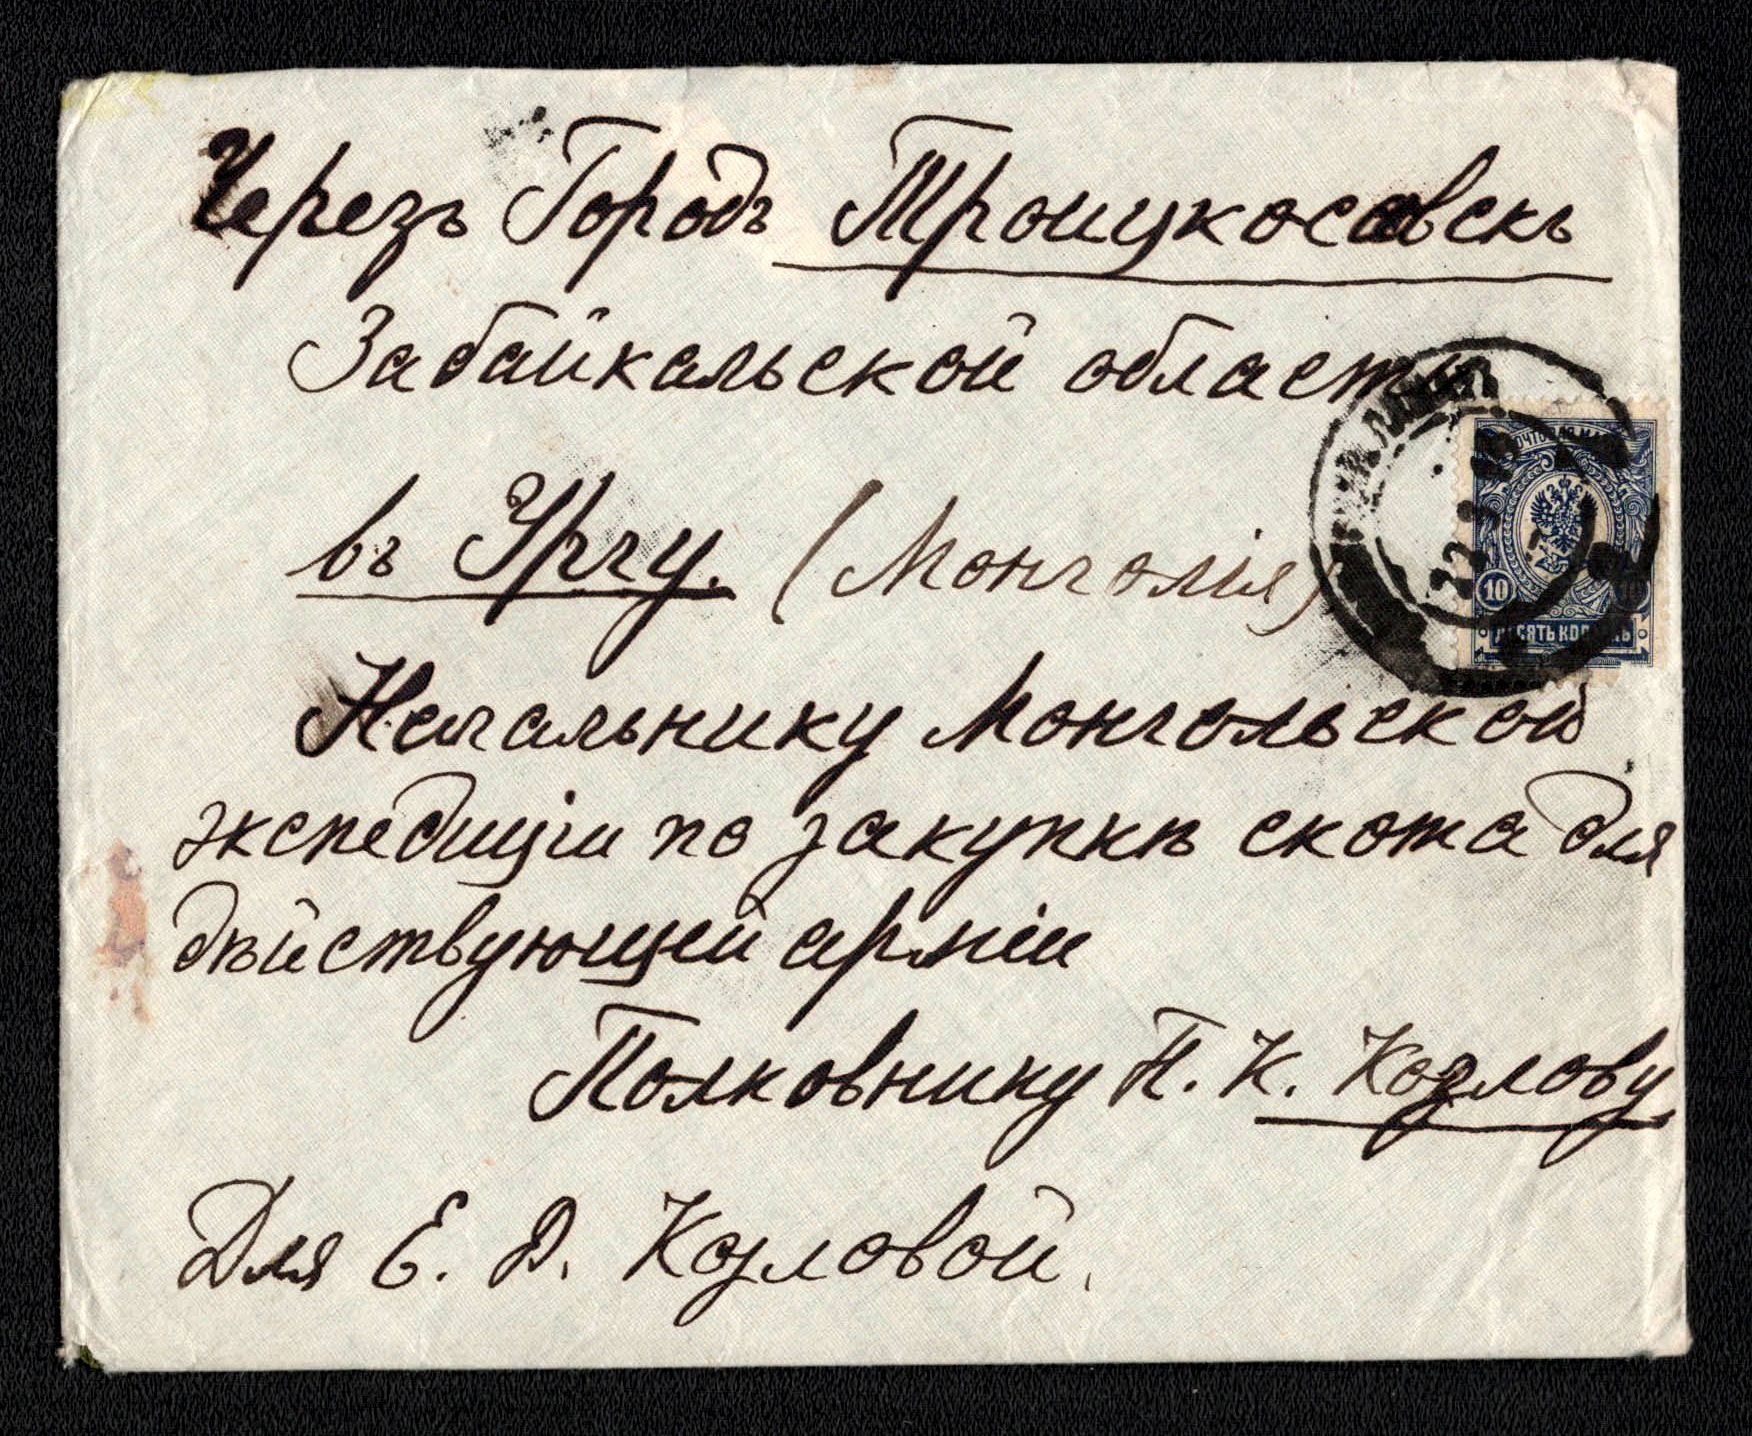 Черезъ Городъ Троицкосавскъ
Забайкальской области
въ Ургу. (Монголія)
10
ДЕСЯТЬ КОПѢЕКЪ
Начальнику Монгольской
экспедиціи по закупкѣ скота для
дѣйствующей арміи
Полковнику П. К. Козлову
Для Е. В. Козловой.